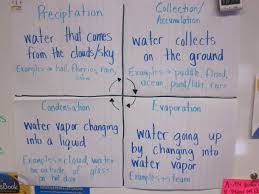 Precipitation
water that comes
from the clouds/sky
Examples → hail, flurries, rain,
Collection/
Accumulation
water collects
on the ground
Examples → puddle, flood,
ocean, pond/lake, rain
Condensation
water vapor changing
into a liquid
Examples → cloud, water
on outside of glass
on hot day
Evaporation
water going up
by changing into
water vapor
Examples → steam